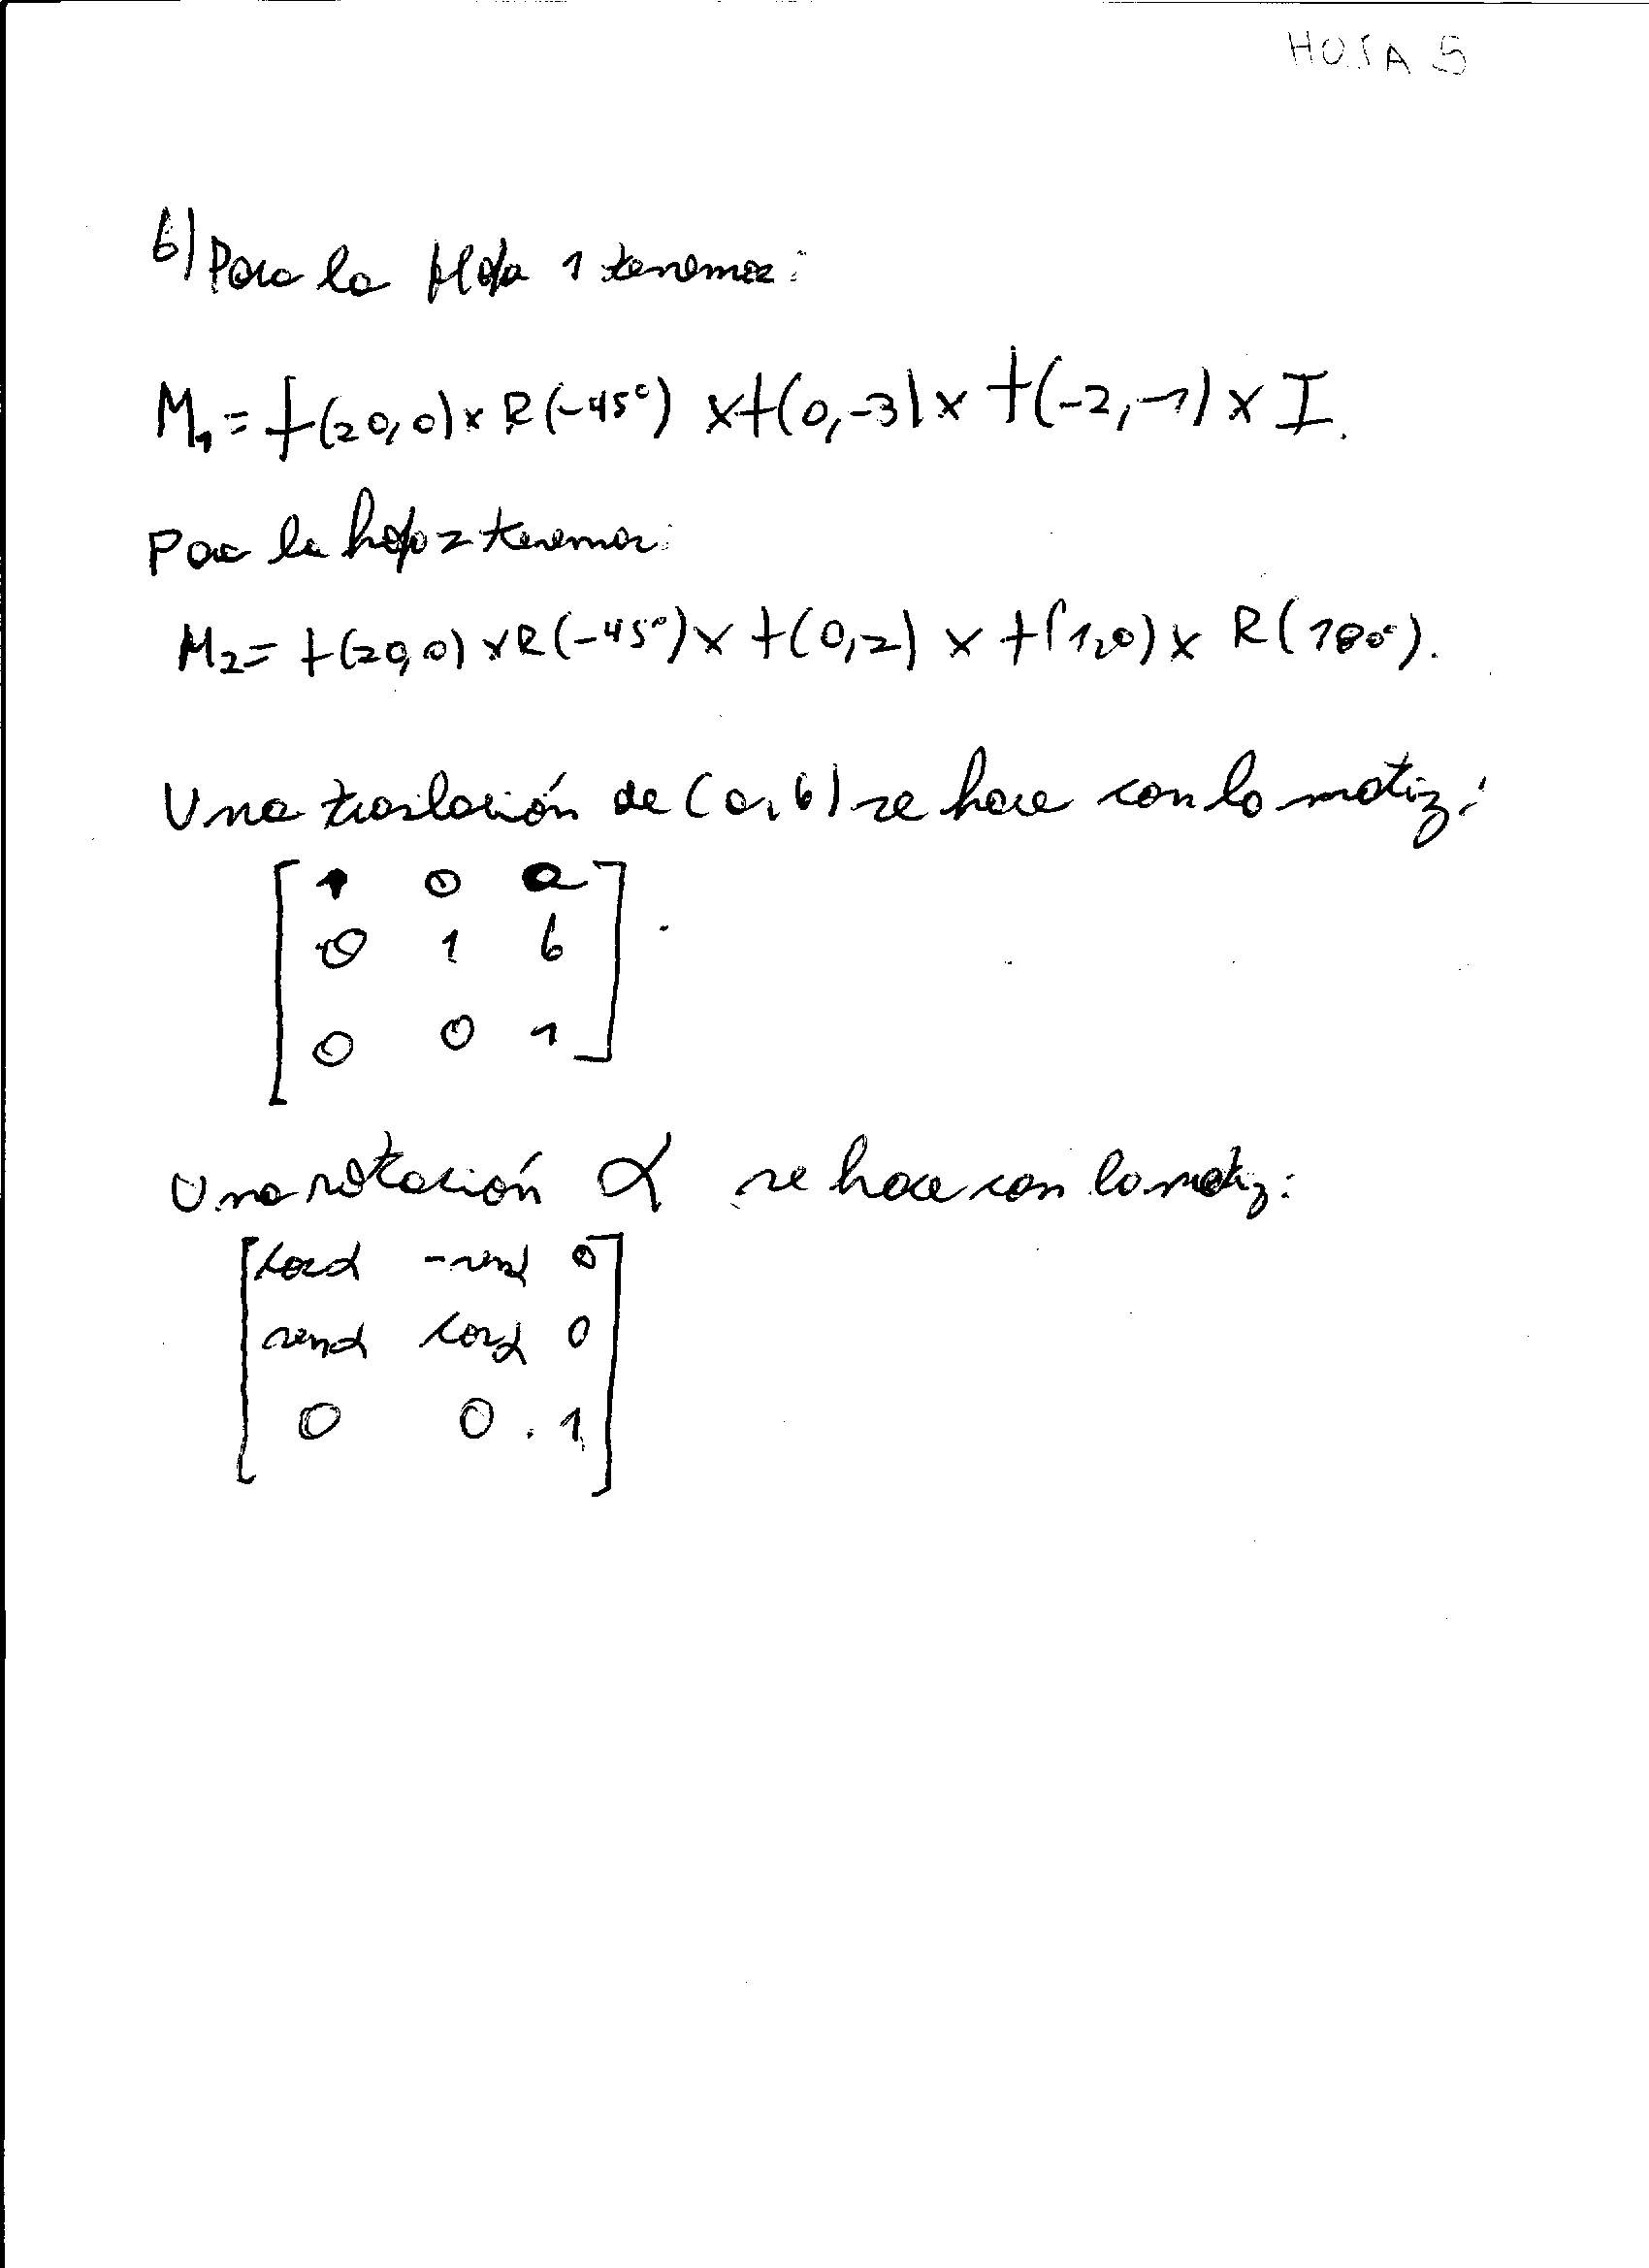 HOJA 5
b) Para la Hoja 1 tenemos:
M₁ = t(20,0) x R(-45°) x t(0,-3) x t(-2,-1) x I.
Para la hoja 2 tenemos:
M₂ = t(20,0) x R(-45°) x t(0,2) x t(1,0) x R(180°).
Una traslación de (a,b) se hace con la matriz:
1 0 a
0 1 b
0 0 1
Una rotación α se hace con la matriz:
cosα -senα 0
senα cosα 0
0 0 1